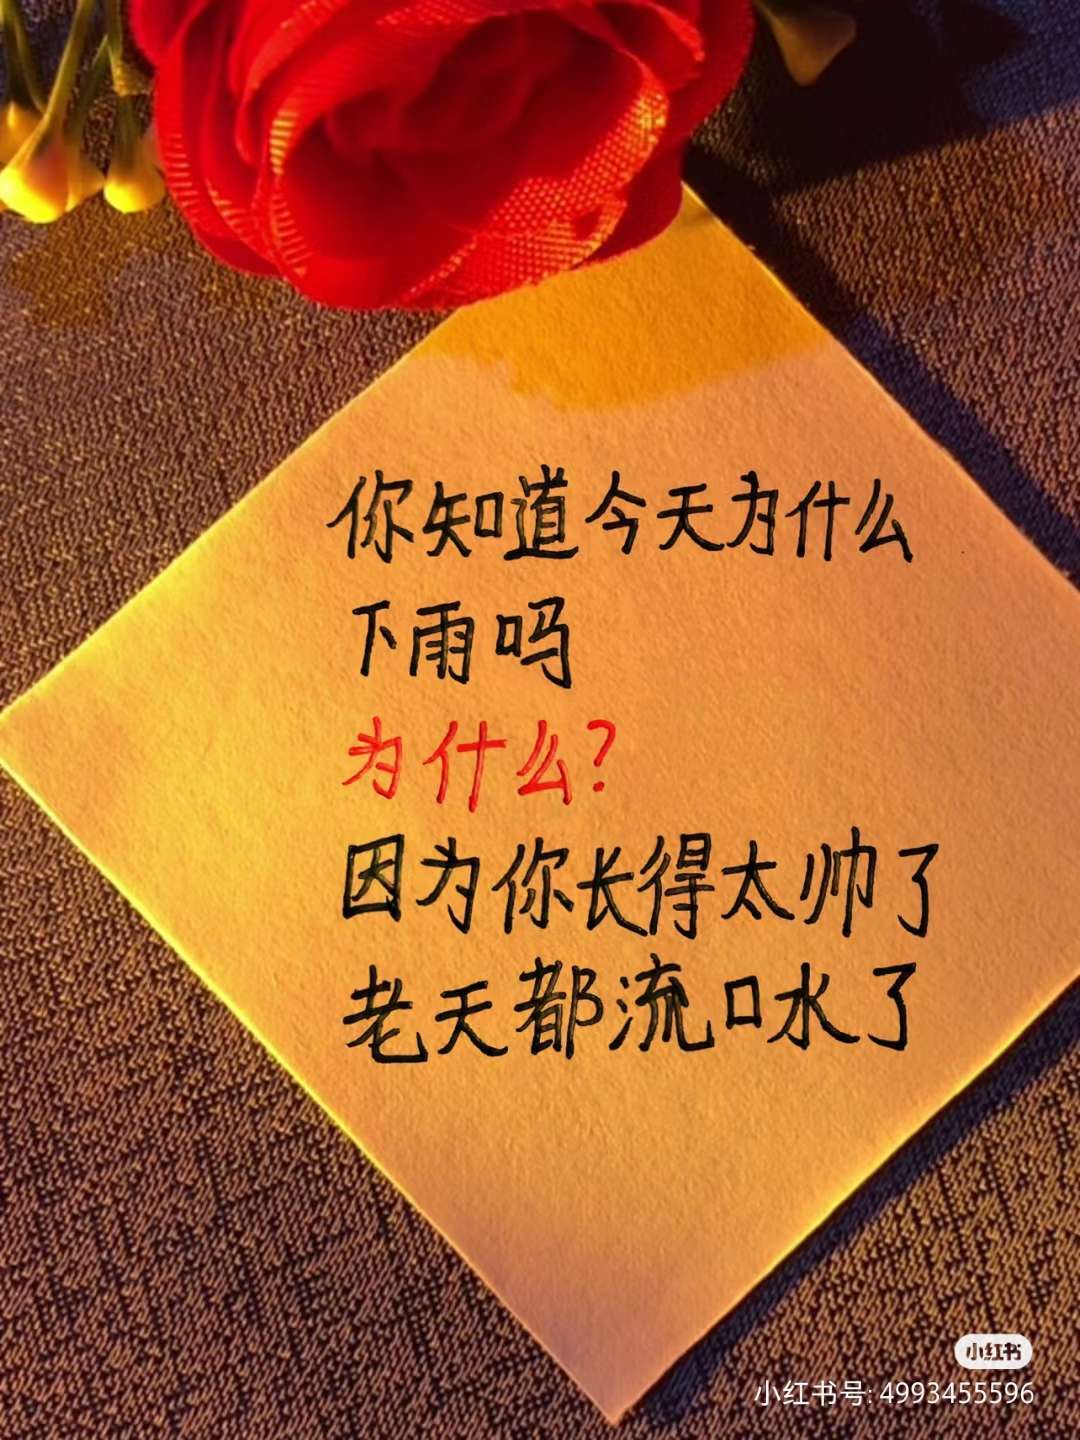 你知道今天为什么
下雨吗
为什么?
因为你长得太帅了
老天都流口水了
小红书
小红书号: 4993455596